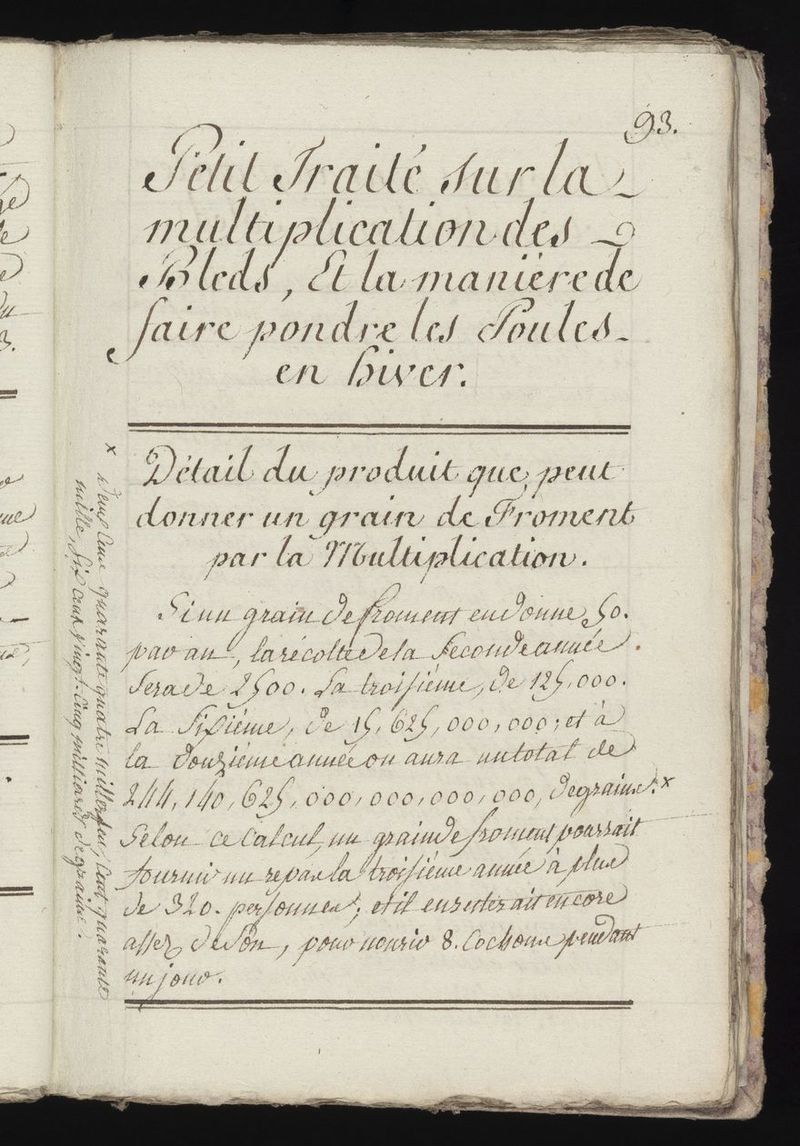 93.
Petit Traité sur la
multiplication des
Bleds, Et la maniére de
faire pondre les Poules
en hiver.
Détail du produit que peut
donner un grain de Froment
par la Multiplication.
Si un grain de froment en donne 50.
par an, la récolte de la seconde année
sera de 2500. La troisiéme, de 125,000.
La Sixiéme, de 15,625,000,000; et à
la douziéme année on aura un total de
244,140,625,000,000,000,000, de grains. x
Selon ce calcul, un grain de froment pourrait
fournir un repas la troisiéme année à plus
de 320. personnes; et il en resterait encore
assez de son, pour nourir 8. Cochons pendant
un jour.
x deux cens quarante quatre millons, cent quarante
mille, six cens vingt-cinq milliards de grains.